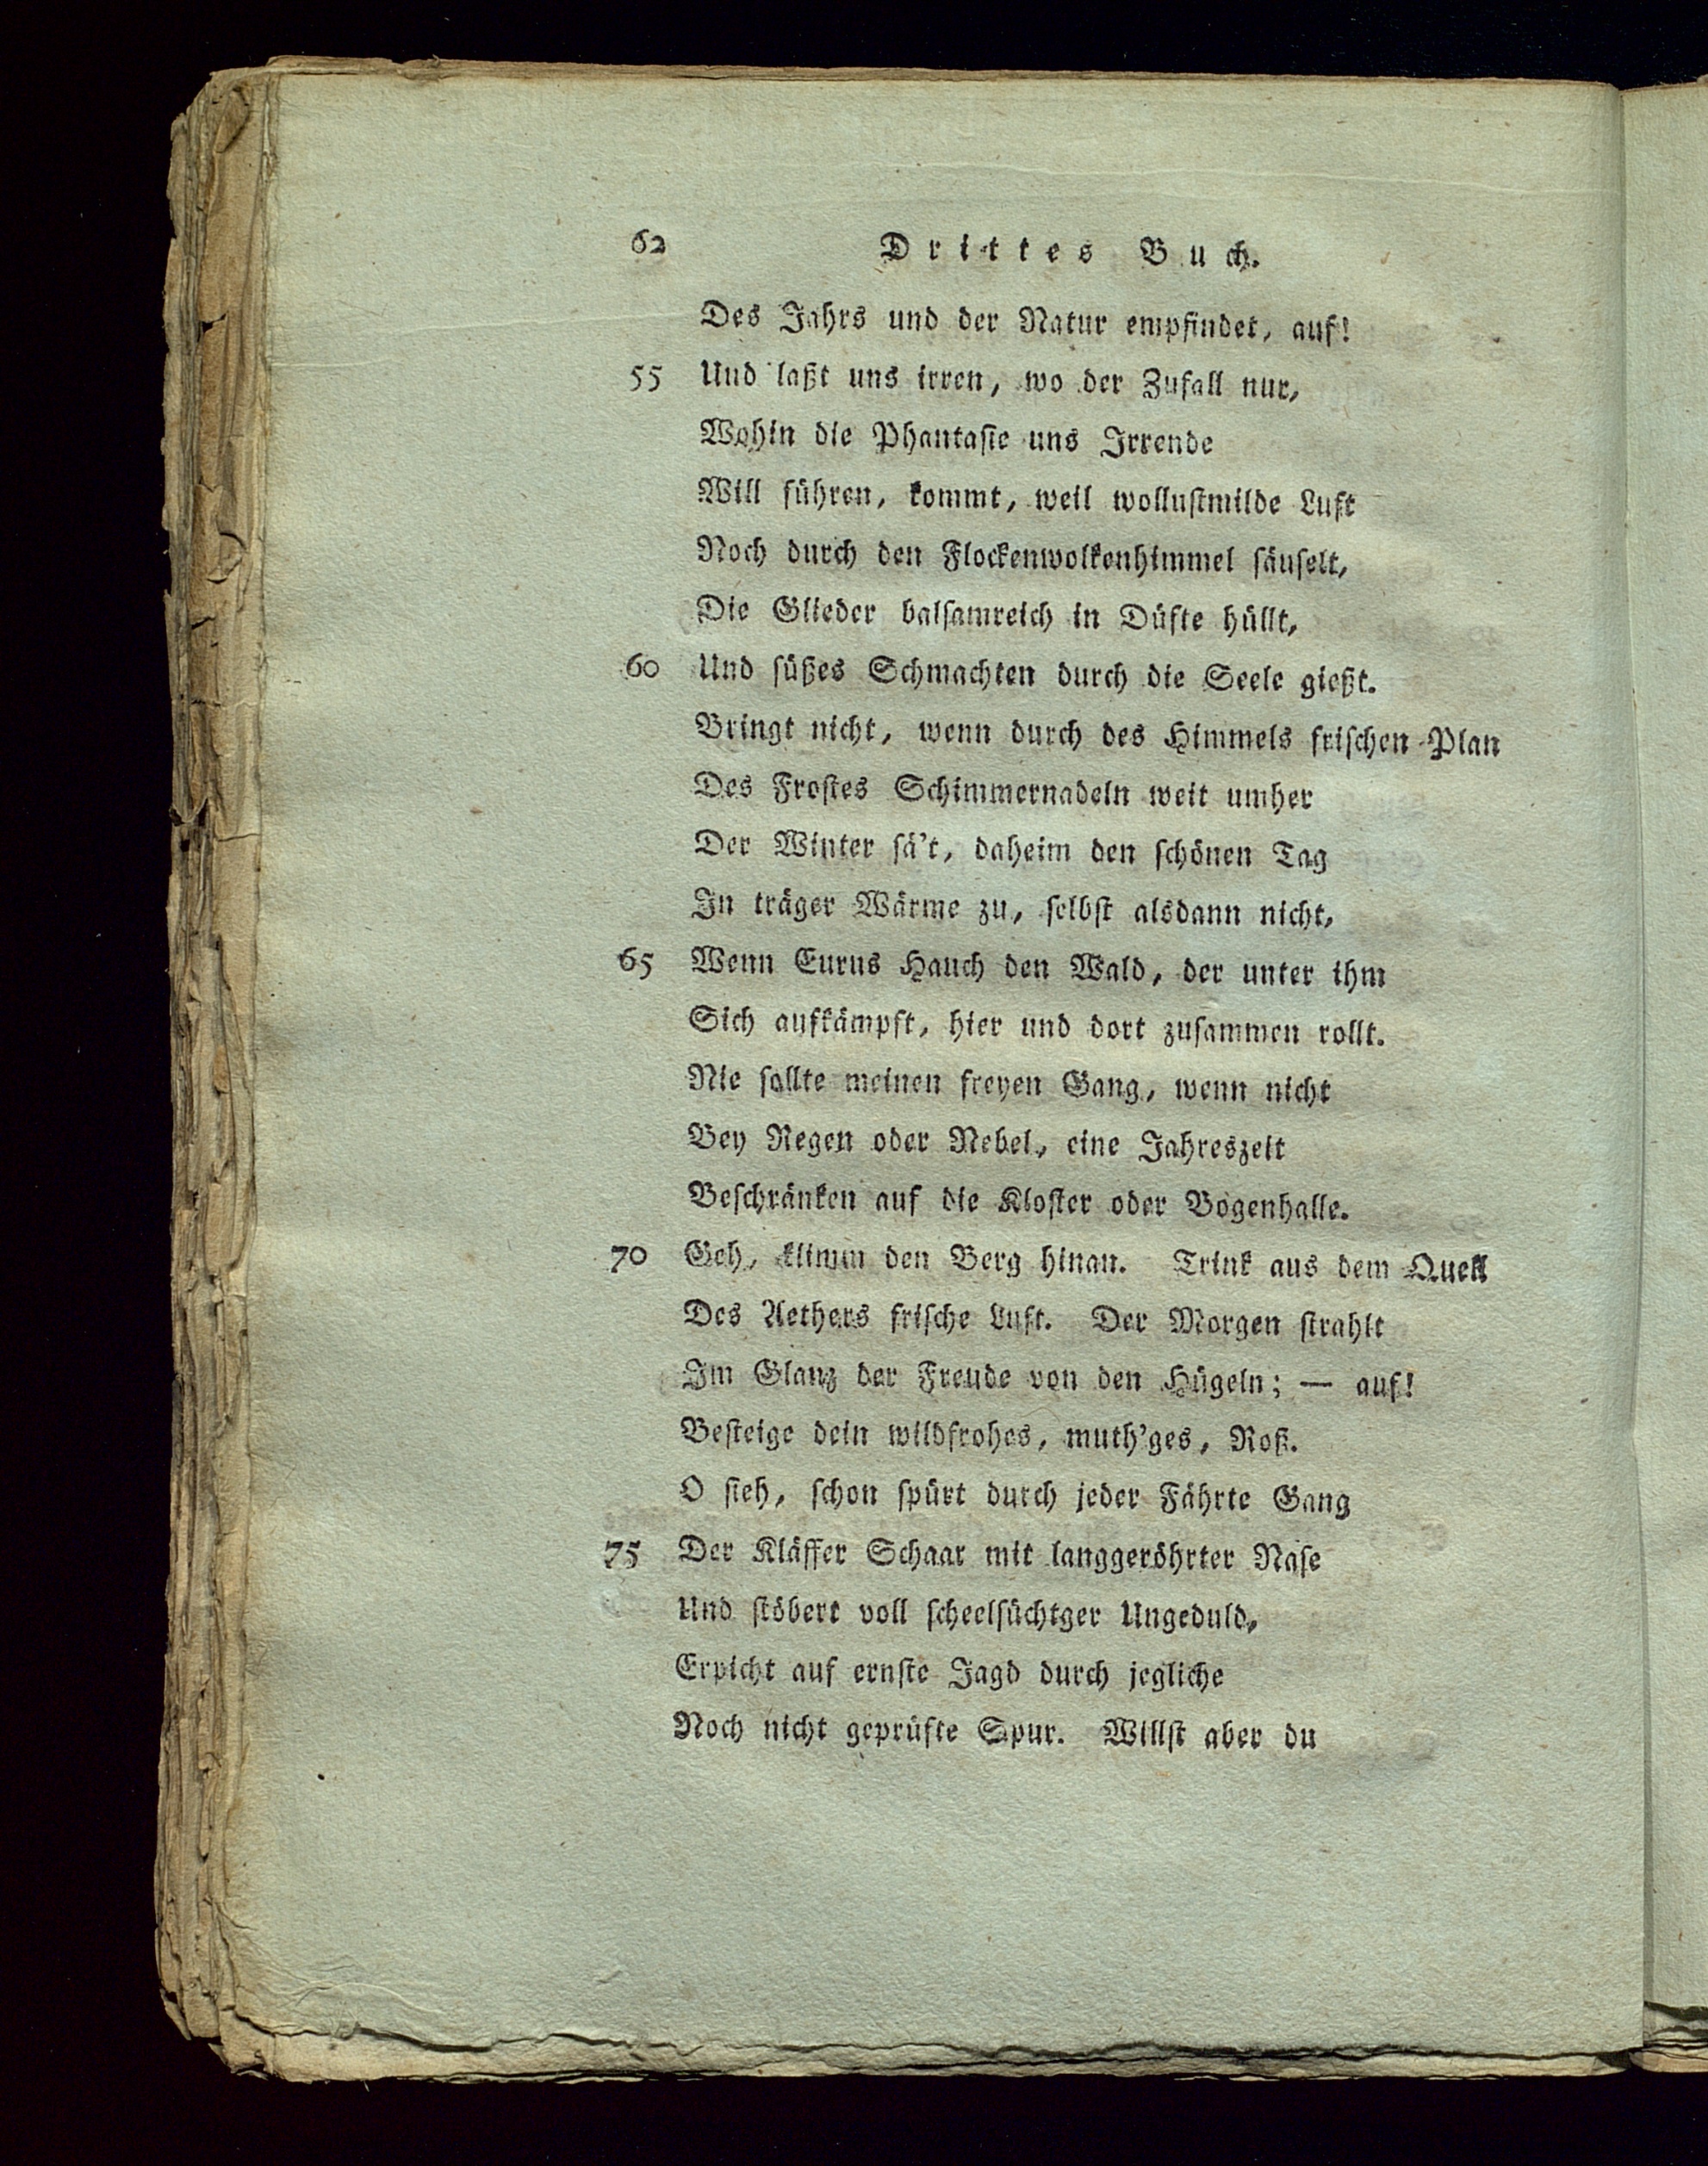 62 Drittes Buch.
Des Jahrs und der Natur empfindet, auf!
55 Und laßt uns irren, wo der Zufall nur,
Wohin die Phantasie uns Irrende
Will führen, kommt, weil wollustmilde Luft
Noch durch den Flockenwolkenhimmel säuselt,
Die Glieder balsamreich in Düfte hüllt,
60 Und süßes Schmachten durch die Seele gießt.
Bringt nicht, wenn durch des Himmels frischen Plan
Des Frostes Schimmernadeln weit umher
Der Winter sä't, daheim den schönen Tag
In träger Wärme zu, selbst alsdann nicht,
65 Wenn Eurus Hauch den Wald, der unter ihm
Sich aufkämpft, hier und dort zusammen rollt.
Nie sollte meinen freyen Gang, wenn nicht
Bey Regen oder Nebel, eine Jahreszeit
Beschränken auf die Kloster oder Bogenhalle.
70 Geh, klimm den Berg hinan. Trink aus dem Quell
Des Aethers frische Luft. Der Morgen strahlt
Im Glanz der Freude von den Hügeln; — auf!
Besteige dein wildfrohes, muth'ges, Roß.
O sieh, schon spürt durch jeder Fährte Gang
75 Der Kläffer Schaar mit langgeröhrter Nase
Und stöbert voll scheelsüchtger Ungeduld,
Erpicht auf ernste Jagd durch jegliche
Noch nicht geprüfte Spur. Willst aber du